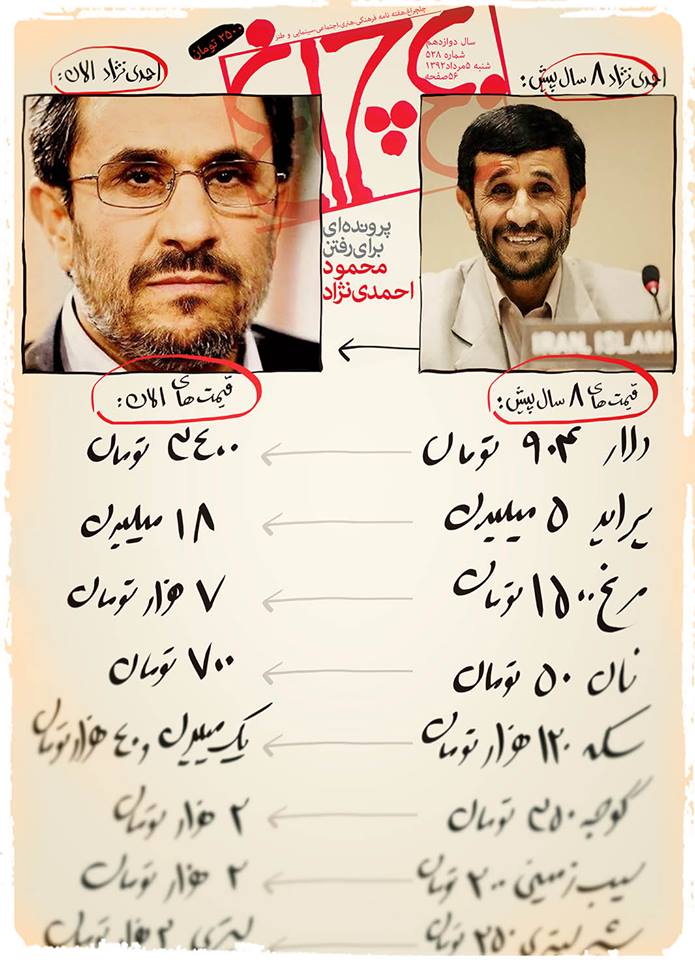 چلچراغ،هفته نامه فرهنگی،هنری،اجتماعی،سینمایی و طنز
۲۵۰۰ تومان
چلچراغ
سال دوازدهم
شماره ۵۲۸
شنبه ۵مرداد۱۳۹۲
۵۶صفحه
احمدی نژاد ۸ سال پیش:
احمدی نژاد الان:
پرونده‌ای
برای رفتن
محمود
احمدی‌نژاد
IRAN, ISLAMI
قیمت های ۸ سال پیش:
قیمت های الان:
دلار ۹۰۴ تومان
۳۴۰۰ تومان
پراید ۵ میلیون
۱۸ میلیون
مرغ ۱۵۰۰ تومان
۷ هزار تومان
نان ۵۰ تومان
۷۰۰ تومان
سکه ۱۲۰ هزار تومان
یک میلیون و ۴۰ هزار تومان
گوجه ۳۵۰ تومان
۲ هزار تومان
سیب زمینی ۲۰۰ تومان
۲ هزار تومان
شیر لیتری ۲۵۰ تومان
لیتری ۲ هزار تومان